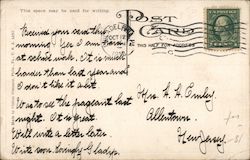 This space may be used for writing.
POST CARD
THIS HALF FOR ADDRESS
Received your card this
morning. Yes I am hard
at school work. It is much
harder than last year and
I don't like it a bit
We to see the pageant last
night. It is great
Will write a letter later
Write soon. Lovingly Gladys
Mrs. H. H.
Allentown,
New Jersey